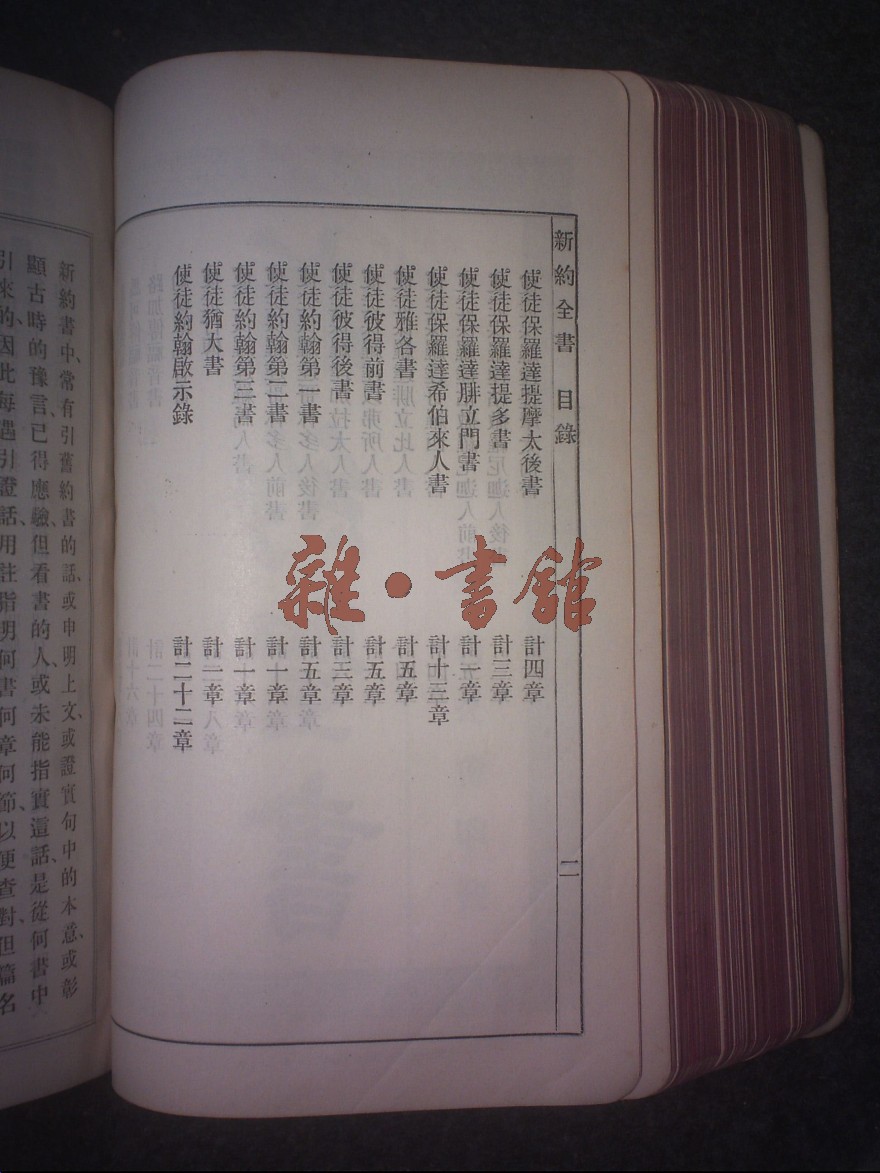 新約全書 目錄 二
使徒保羅達提摩太後書 計四章
使徒保羅達提多書 計三章
使徒保羅達腓立門書 計一章
使徒保羅達希伯來人書 計十三章
使徒雅各書 計五章
使徒彼得前書 計五章
使徒彼得後書 計三章
使徒約翰第一書 計五章
使徒約翰第二書 計一章
使徒約翰第三書 計一章
使徒猶大書 計一章
使徒約翰啟示錄 計二十二章
雜·書館
新約書中、常有引舊約書的話、或申明上文、或證實句中的本意、或彰
顯古時的豫言、已得應驗、但看書的人、或未能指實這話、是從何書中
引來的、因此每遇引證話、用註指明何書何章何節、以便查對、但篇名